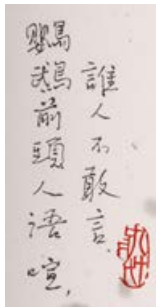 鸚鵡前頭人語喧,
誰人不敢言.